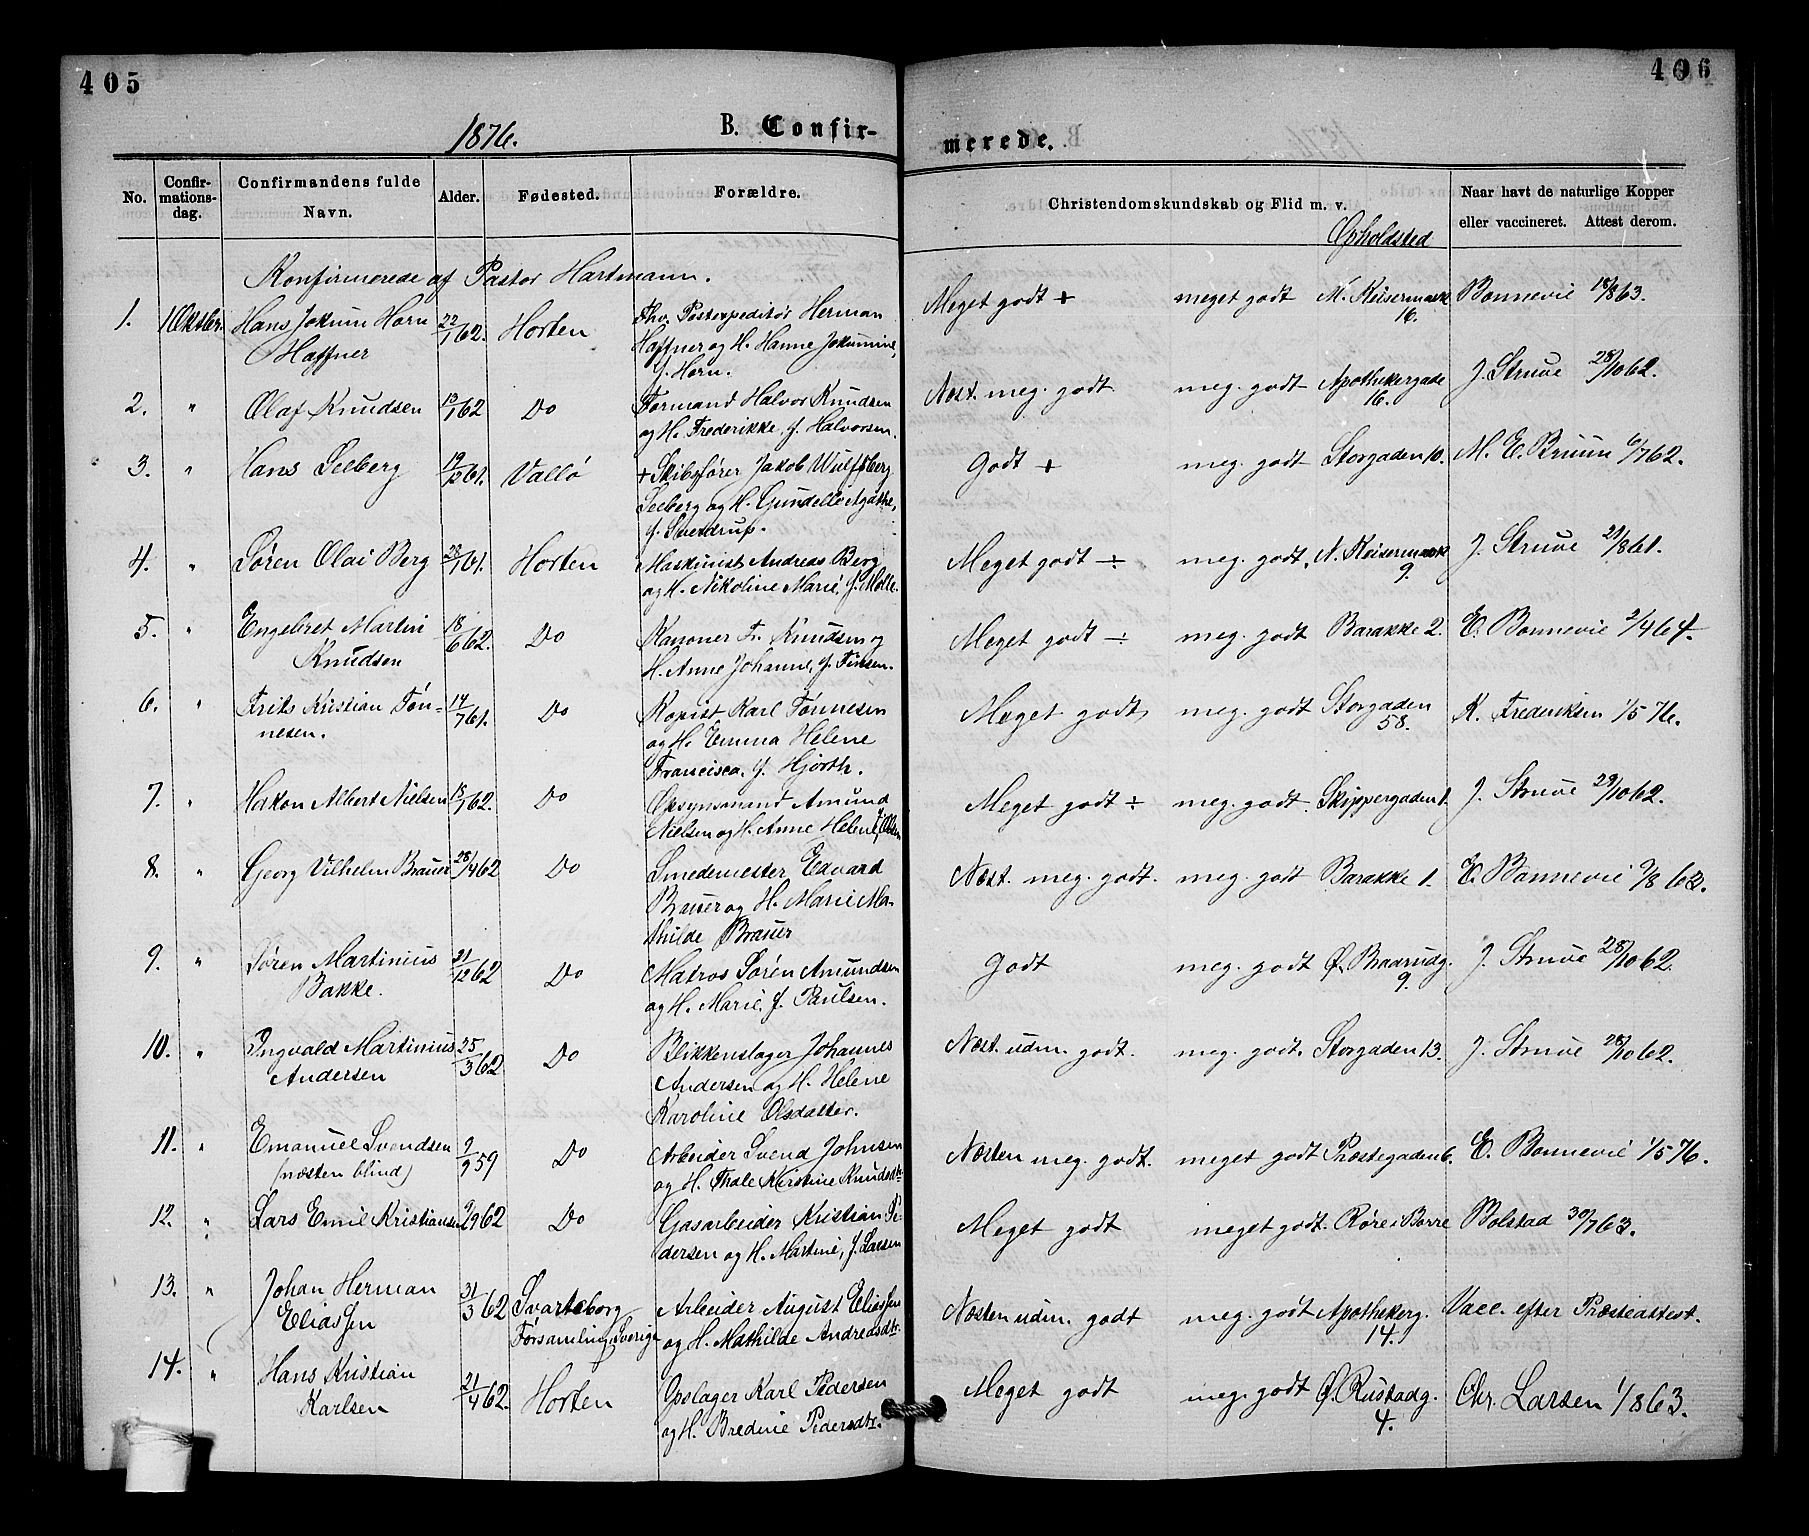 405
406
1876.
B. Confir-
merede.
No.
Confir-
mations-
dag.
Confirmandens fulde
Navn.
Alder.
Fødested.
Forældre.
Christendomskundskab og Flid m. v.
Opholdsted
Naar havt de naturlige Kopper
eller vaccineret. Attest derom.
Konfirmerede af Pastor Hartmann.
1. 1 Oktbr. Hans Jokum Horn 22/1 62. Horten Fhv. Postexpeditør Herman Meget godt + meget godt N. Keisermark Bonnevie 18/8 63.
Haffner Haffner og H. Hanne Jokumine, 16.
f. Horn.
2. " Olaf Knudsen 13/1 62 Do Formand Halvor Knudsen Næst. meg. godt meg. godt Apothekergade J. Struve 28/10 62.
og H. Frederikke, f. Halvorsen. 16.
3. " Hans Seeberg 19/12 61. Vallö + Skibsfører Jakob Wulfsberg Godt + meg. godt Storgaden 10. M. E. Bruun 6/7 62.
Seeberg og H. Gundelle Agathe,
f. Sverdrup.
4. " Søren Olai Berg 28/1 61. Horten Maskinist Andreas Berg Meget godt ÷ meg. godt. N. Keisermark J. Struve 21/8 61.
og H. Nikoline Marie, f. Molle. 9.
5. " Engebret Martin 18/6 62. Do Kanoner Fr. Knudsen og Meget godt ÷ meg. godt Barakke 2. E. Bonnevie 2/4 64.
Knudsen H. Anne Johanne, f. Finsen.
6. " Frits Kristian Tøn- 14/7 61. Do Kopist Karl Tønnesen Meget godt meg. godt Storgaden K. Frederiksen 1/5 76.
nesen. og H. Emma Helene 58.
Francisca, f. Hjorth.
7. " Hakon Albert Nielsen 18/1 62. Do Opsynsmand Amund Meget godt ÷ meg. godt. Skippergaden 1. J. Struve 29/10 62.
Nielsen og H. Anne Helene, f. Olsen
8. " Georg Vilhelm Brauer 28/4 62 Do Smedemester Edvard Næst. meg. godt. meg. godt Barakke 1. E. Bonnevie 9/8 63.
Brauer og H. Marie Ma-
thilde Brauer
9. " Søren Martinius 21/12 62 Do Matros Søren Amundsen Godt meg. godt Ø. Braarudg. J. Struve 28/10 62.
Bakke. og H. Marie, f. Paulsen. 9.
10. " Ingvald Martinius 25/3 62 Do Blikkenslager Johannes Næst. udm. godt. meg. godt. Storgaden 13. J. Struve 28/10 62.
Andersen Andersen og H. Helene
Karoline Olsdatter.
11. " Emanuel Svendsen 9/9 59 Do Arbeider Svend Johnsen Næsten meg. godt. meget godt Præstegaden 6. E. Bonnevie 1/5 76.
(næsten blind) og H. Thale Kirstine Knudsdtr
12. " Lars Emil Kristiansen 9/9 62 Do Gasarbeider Kristian Pe- Meget godt meget godt. Røre i Borre Bolstad 30/7 63.
dersen og H. Martine, f. Larsen
13. " Johan Herman 31/3 62 Svarteborg Arbeider August Eliassen Næsten udm. godt meg. godt Apothekerg. Vacc. efter Præsteattest.
Eliassen Forsamling, Sverige og H. Mathilde Andreasdtr. 14.
14. " Hans Kristian 21/4 62. Horten Opslager Karl Pedersen Meget godt meg. godt Ø. Rustadg. Chr. Larsen 1/8 63.
Karlsen og H. Bredine Pedersdtr. 4.